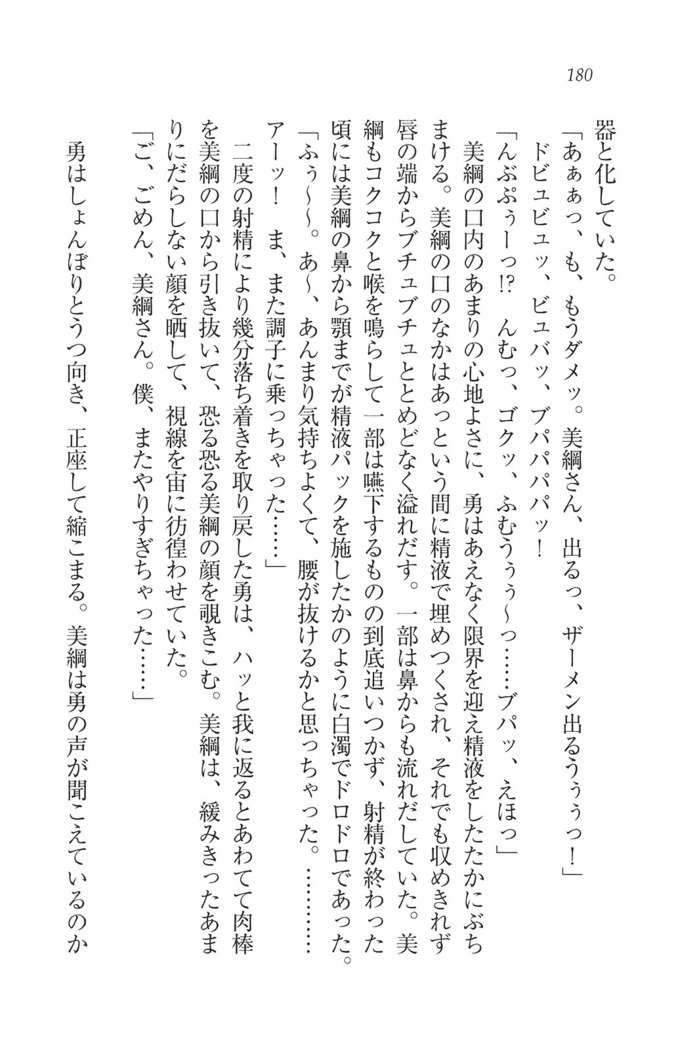 180
器と化していた。
「あぁぁっ、も、もうダメッ。美綱さん、出るっ、ザーメン出るうぅぅっ！」
ドビュビュッ、ビュバッ、ブパパパパッ！
「んぶぷぅーっ!?　んむっ、ゴクッ、ふむうぅぅ〜っ……ブパッ、えほっ」
美綱の口内のあまりの心地よさに、勇はあえなく限界を迎え精液をしたたかにぶち
まける。美綱の口のなかはあっという間に精液で埋めつくされ、それでも収めきれず
唇の端からブチュブチュととめどなく溢れだす。一部は鼻からも流れだしていた。美
綱もコクコクと喉を鳴らして一部は嚥下するものの到底追いつかず、射精が終わった
頃には美綱の鼻から顎までが精液パックを施したかのように白濁でドロドロであった。
「ふぅ〜〜。あ〜、あんまり気持ちよくて、腰が抜けるかと思っちゃった。…………
アーッ！　ま、また調子に乗っちゃった……」
二度の射精により幾分落ち着きを取り戻した勇は、ハッと我に返るとあわてて肉棒
を美綱の口から引き抜いて、恐る恐る美綱の顔を覗きこむ。美綱は、緩みきったあま
りにだらしない顔を晒して、視線を宙に彷徨わせていた。
「ご、ごめん、美綱さん。僕、またやりすぎちゃった……」
勇はしょんぼりとうつ向き、正座して縮こまる。美綱は勇の声が聞こえているのか